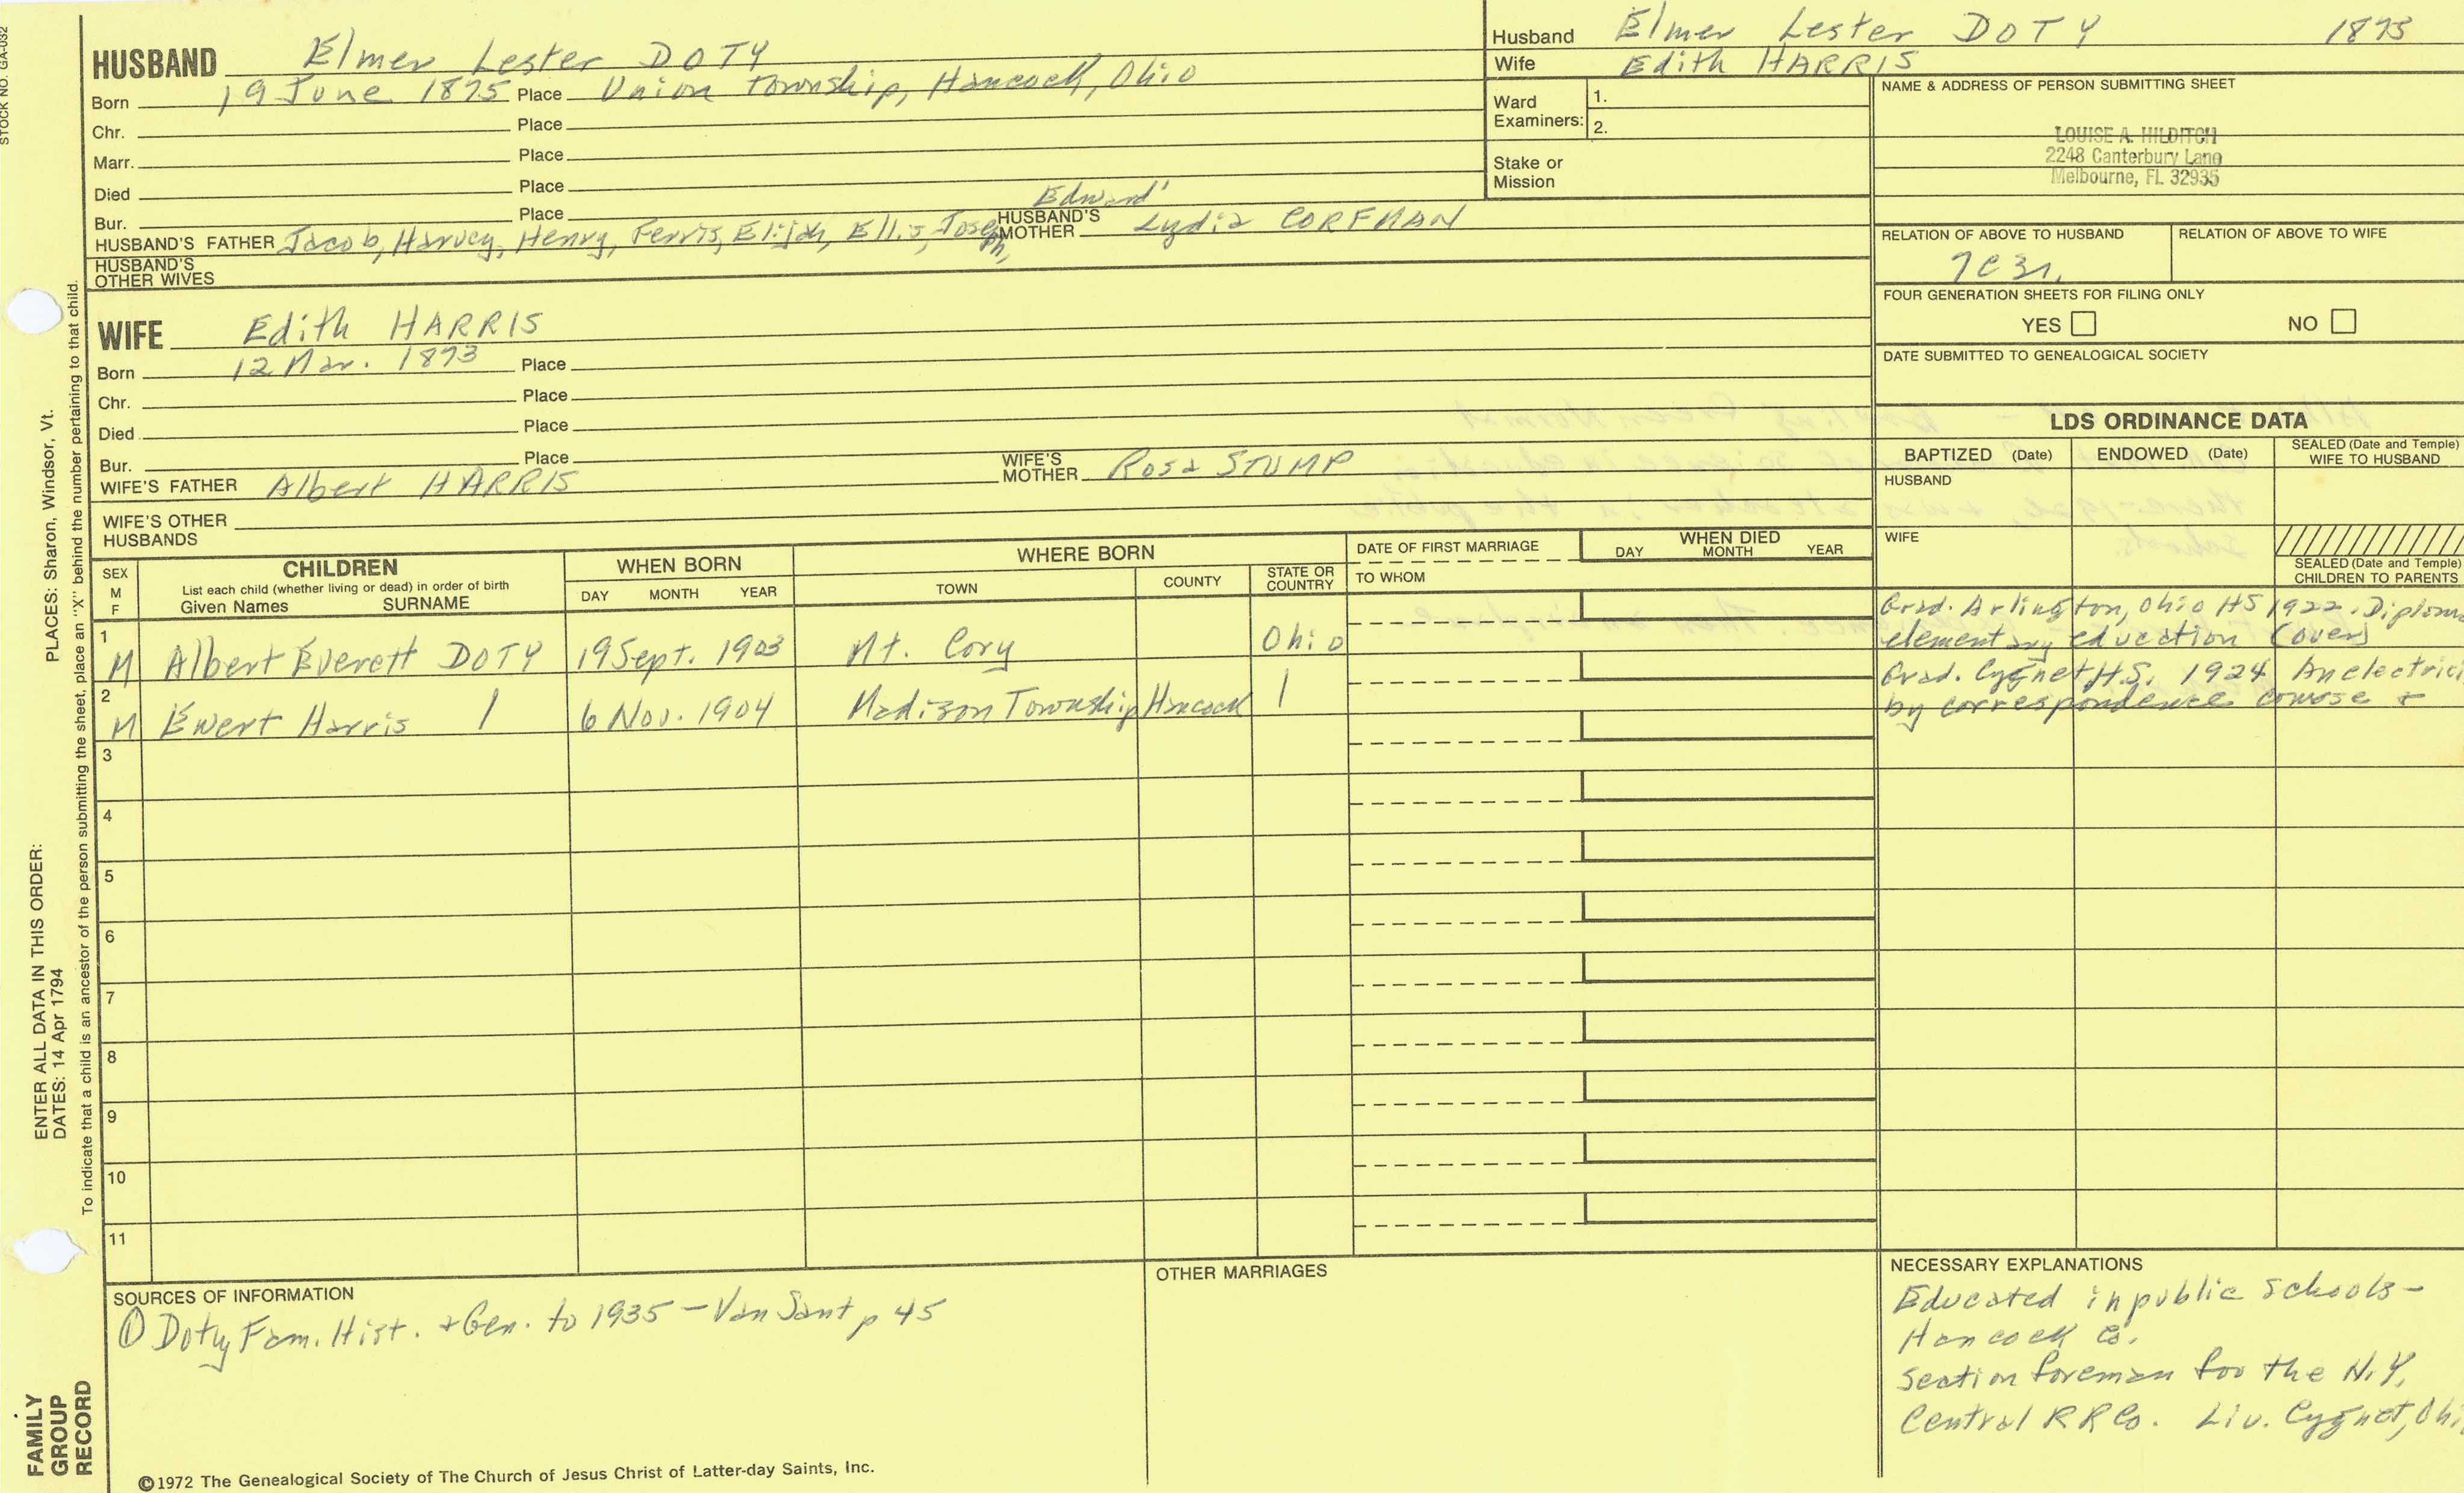 STOCK NO. GA-032
HUSBAND Elmer Lester DOTY
Born 19 June 1875 Place Union Township, Hancock, Ohio
Chr. Place
Marr. Place
Died Place
Bur. Place
HUSBAND'S FATHER Jacob, Harvey, Henry, Ferris, Elijah, Ellis, Joseph, Edward' HUSBAND'S MOTHER Lydia CORFMAN
HUSBAND'S OTHER WIVES
WIFE Edith HARRIS
Born 12 Mar. 1873 Place
Chr. Place
Died Place
Bur. Place
WIFE'S FATHER Albert HARRIS WIFE'S MOTHER Rosa STUMP
WIFE'S OTHER HUSBANDS
Husband Elmer Lester DOTY 1875
Wife Edith HARRIS
Ward Examiners: 1.
2.
Stake or Mission
NAME & ADDRESS OF PERSON SUBMITTING SHEET
LOUISE A. HILDITCH
2248 Canterbury Lane
Melbourne, FL 32935
RELATION OF ABOVE TO HUSBAND RELATION OF ABOVE TO WIFE
FOUR GENERATION SHEETS FOR FILING ONLY
YES NO
DATE SUBMITTED TO GENEALOGICAL SOCIETY
LDS ORDINANCE DATA
BAPTIZED (Date) ENDOWED (Date) SEALED (Date and Temple) WIFE TO HUSBAND
HUSBAND
WIFE
SEALED (Date and Temple) CHILDREN TO PARENTS
SEX M F
CHILDREN
List each child (whether living or dead) in order of birth
Given Names SURNAME
WHEN BORN
DAY MONTH YEAR
WHERE BORN
TOWN COUNTY STATE OR COUNTRY
DATE OF FIRST MARRIAGE
TO WHOM
WHEN DIED
DAY MONTH YEAR
1 M Albert Everett DOTY 19 Sept. 1903 Mt. Cory Ohio
Grad. Arlington, Ohio HS 1922. Diplom
elementary education (over)
2 M Ewert Harris | 6 Nov. 1904 Madison Township Hancock |
Grad. Cygnet H.S. 1924 An electrici
by correspondence course +
3
4
5
6
7
8
9
10
11
SOURCES OF INFORMATION
① Doty Fam. Hist. + Gen. to 1935 - Van Sant p 45
OTHER MARRIAGES
NECESSARY EXPLANATIONS
Educated in public schools -
Hancock Co.
Section foreman for the N.Y.
Central RR Co. Liv. Cygnet, Ohi
©1972 The Genealogical Society of The Church of Jesus Christ of Latter-day Saints, Inc.
FAMILY
GROUP
RECORD
ENTER ALL DATA IN THIS ORDER:
DATES: 14 Apr 1794
PLACES: Sharon, Windsor, Vt.
To indicate that a child is an ancestor of the person submitting the sheet, place an "X" behind the number pertaining to that child.